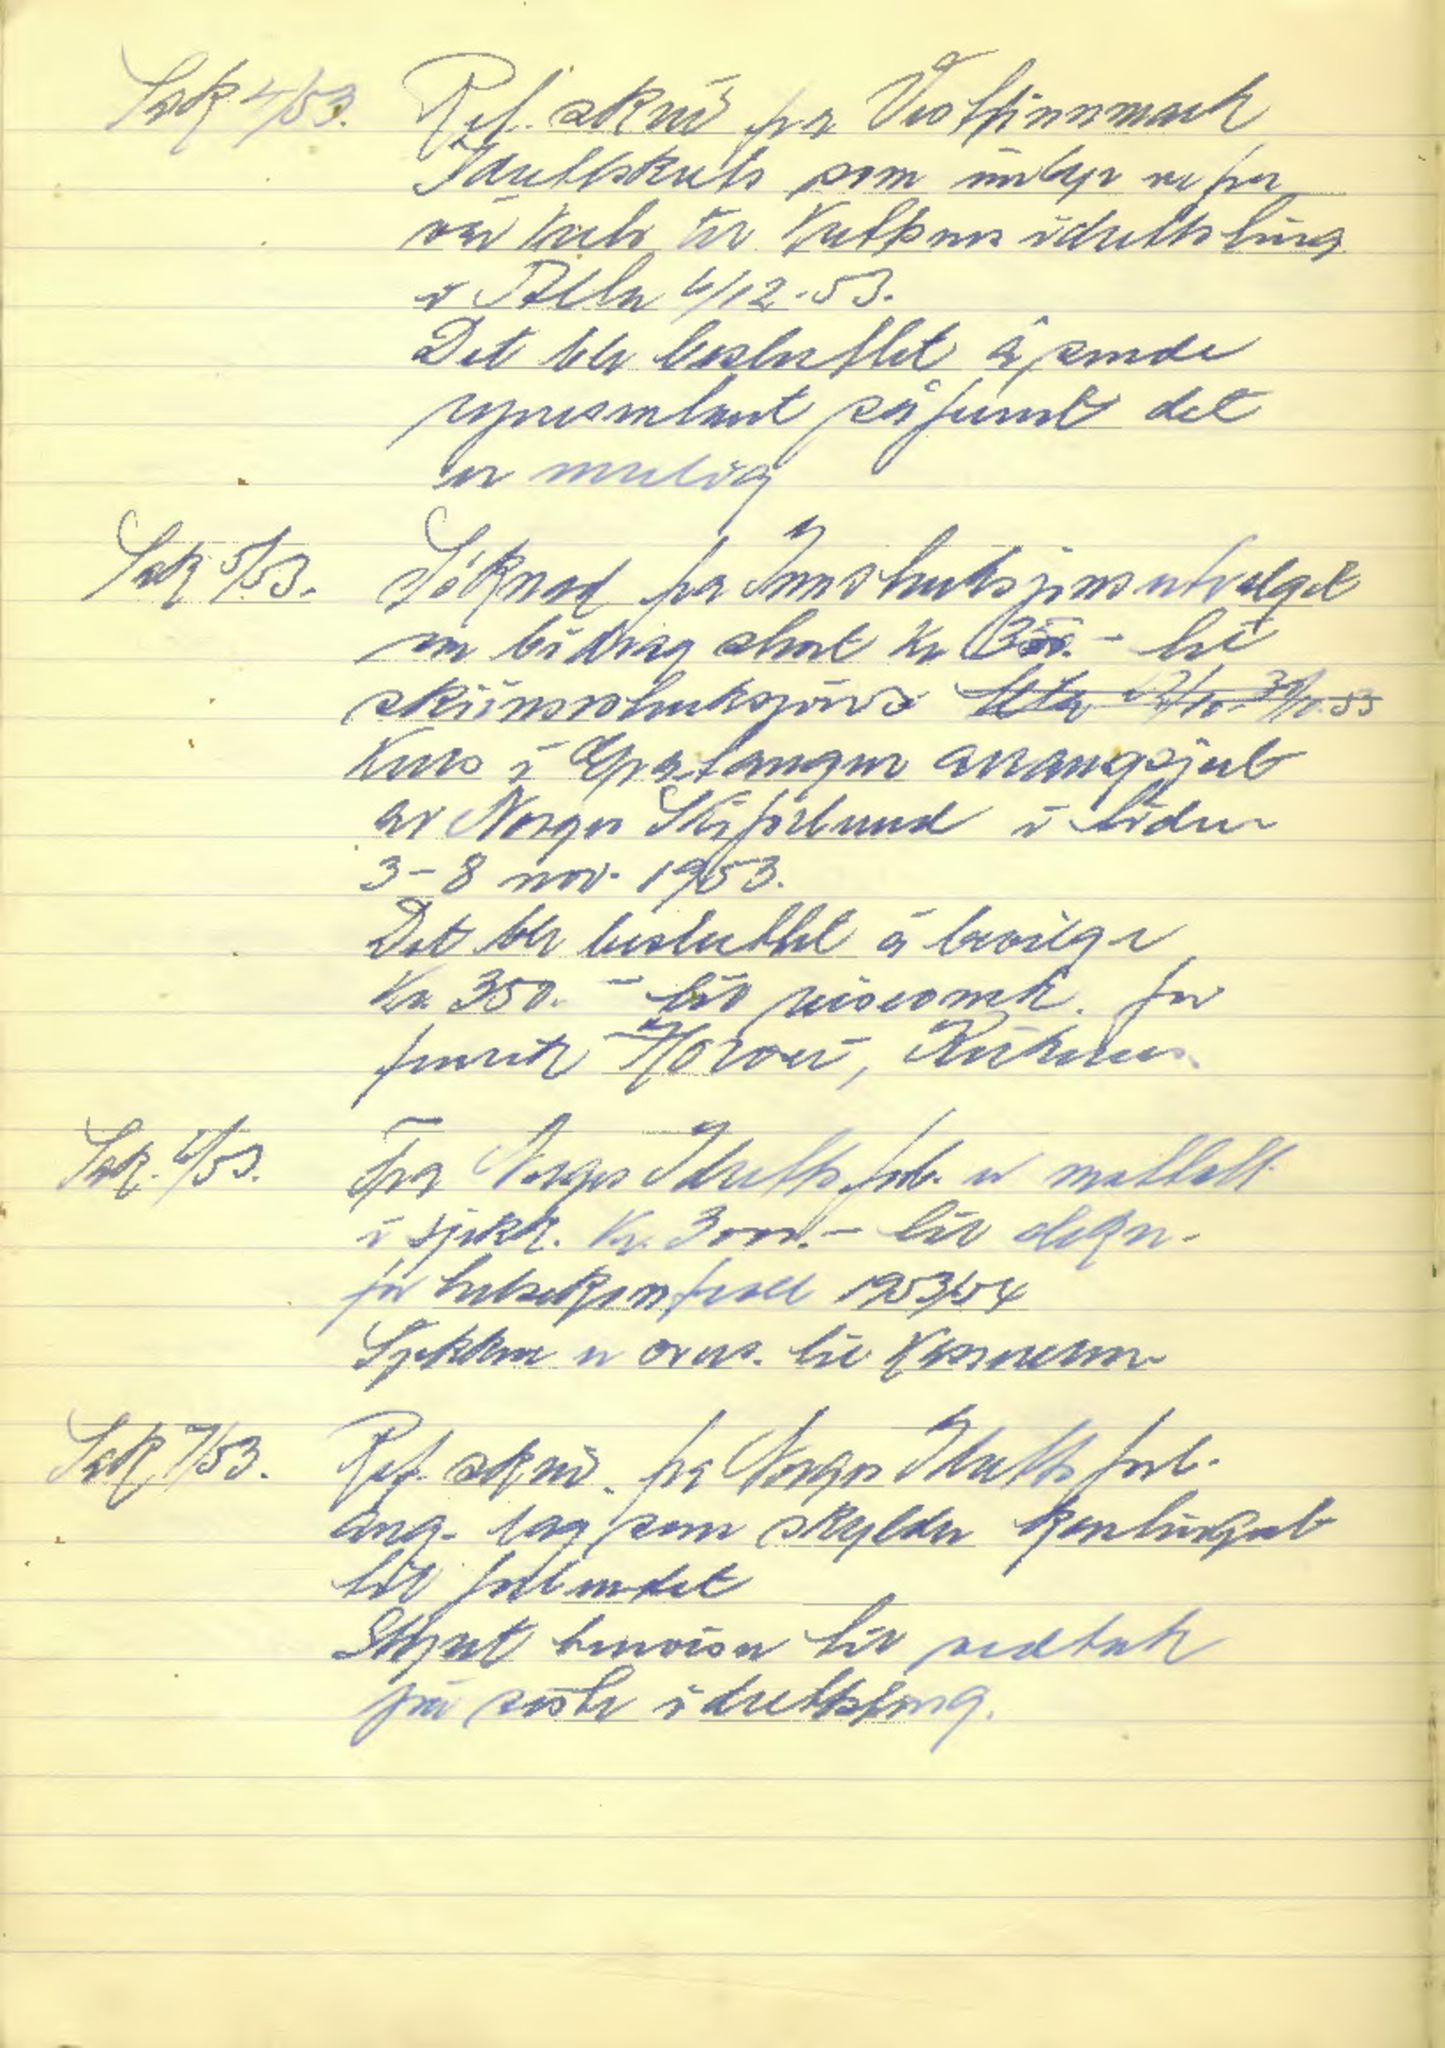 Sak 4/53. Ref. skriv fra Vestfinnmark
Idrettskrets som innbyr rep fra
vår krets til Kretsens idrettsting
i Alta 6/12-53.
Det ble besluttet å sende
representant såfremt det
er mulig
Sak 5/53. Söknad fra Instruksjonsutvalget
om bidrag stort Kr 350.- til
skiinstruksjons
Kurs i Øvre Langen arrangsjert
av Norges Skiforbund i tiden
3-8 nov. 1953.
Det ble besluttet å bevilge
Kr. 350.- til reiseomk. for
fenrik Kirkenes.
Sak. 6/53. Fra Norges Idrettsforb. er mottatt
i sjekk. Kr. 3000.- til dekn.
for 1953/54
Sjekken er overs. til Kassereren
Sak 7/53. Ref. skriv. fra Norges Idrettsforb.
ang. lag som skylder kontingent
til forbundet
Styret henviser til vedtak
på siste idrettsting.